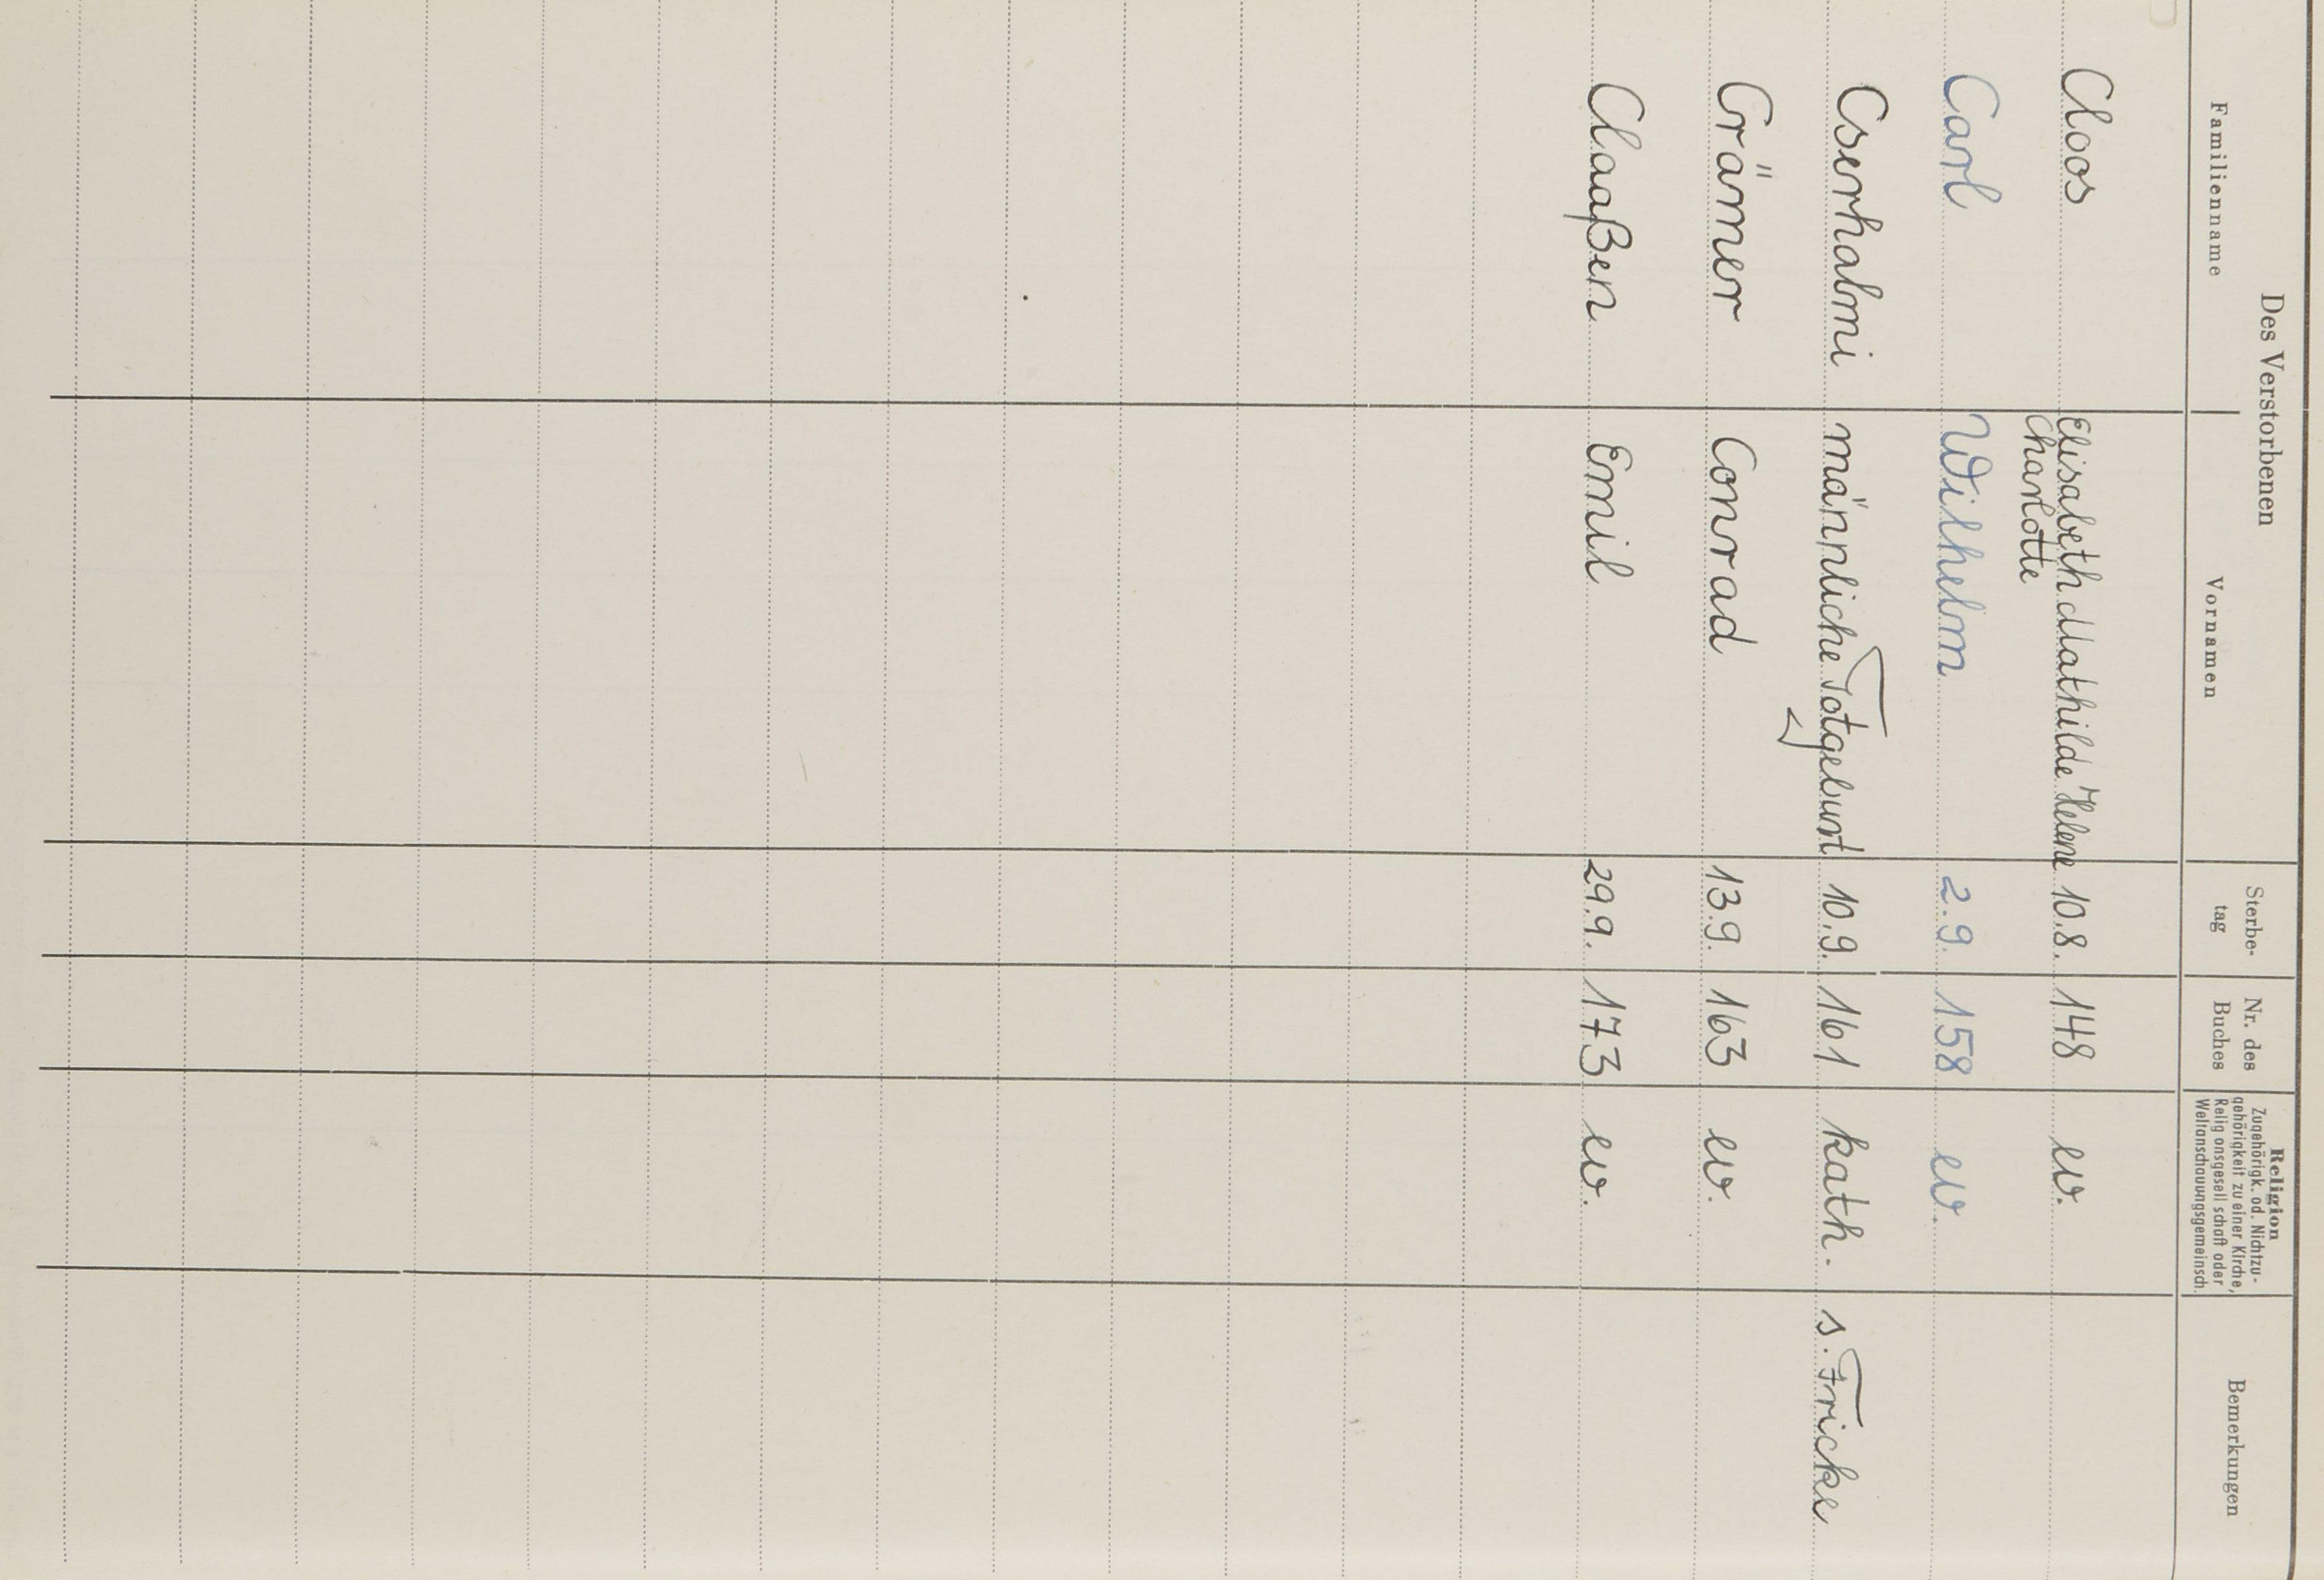 Des Verstorbenen
Familienname
Vornamen
Sterbe-
tag
Nr. des
Buches
Religion
Zugehörigk. od. Nichtzu-
gehörigkeit zu einer Kirche,
Religionsgesellschaft oder
Weltanschauungsgemeinsch.
Bemerkungen
Cloos Elisabeth Mathilde Helene 10.8. 148 ev.
Charlotte
Carl Wilhelm 2.9. 158 ev.
Cserhalmi männliche Totgeburt 10.9. 161 kath. s. Fricke
Crämer Conrad 13.9. 163 ev.
Claaßen Emil 29.9. 173 ev.